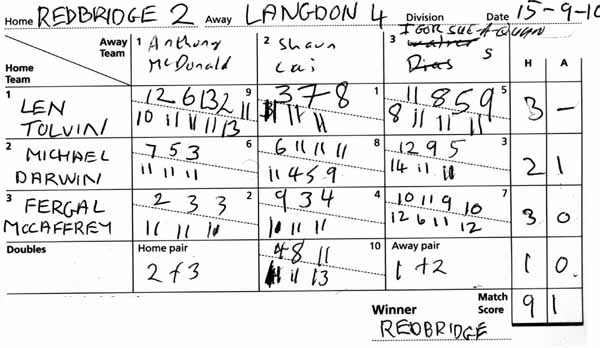 Home REDBRIDGE 2 Away LANGDON 4 Division Date 15-9-10
Away Team 1 Anthony McDonald 2 Shaun Cai 3 IGOR Dias S H A
Home Team
1 LEN TOLVIN 9 12 6 13 2 11 1 3 7 8 5 11 8 5 9 3 -
10 11 11 11 13 11 11 11 8 11 11 11
2 MICHAEL DARWIN 6 7 5 3 8 6 11 11 11 3 12 9 5 2 1
11 11 11 11 4 5 9 14 11 11
3 FERGAL MCCAFFREY 2 2 3 3 4 9 3 4 7 10 11 9 10 3 0
11 11 11 11 11 12 6 11 12
Doubles Home pair 10 4 8 11 Away pair 1 0.
2 + 3 11 11 13 1 + 2
Winner Match Score 9 1
REDBRIDGE